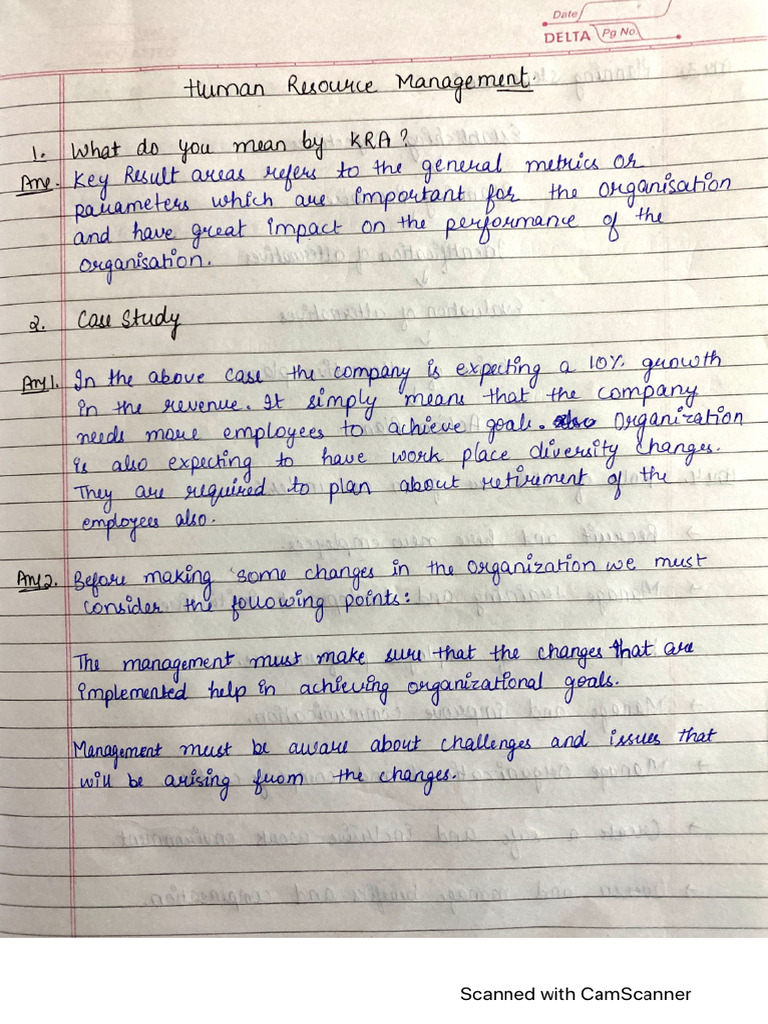 Date
DELTA Pg No
Human Resource Management.
1. What do you mean by KRA?
Ans. Key Result areas refers to the general metrics or
parameters which are important for the organisation
and have great impact on the performance of the
organisation.
2. Case Study
Ans 1. In the above case the company is expecting a 10% growth
in the revenue. It simply means that the company
needs more employees to achieve goals. Organization
is also expecting to have work place diversity changes.
They are required to plan about retirement of the
employees also.
Ans 2. Before making some changes in the organization we must
consider the following points:
The management must make sure that the changes that are
implemented help in achieving organizational goals.
Management must be aware about challenges and issues that
will be arising from the changes.
Scanned with CamScanner